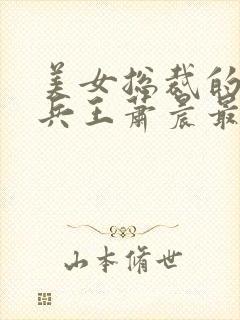 美女总裁的
兵王萧晨最
山本脩世